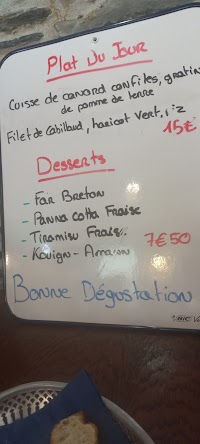 Plat du Jour
Cuisse de canard confites, gratin
de pomme de terre
Filet de Cabillaud, haricot vert, riz
15€
Desserts
- Far Breton
- Panna cotta Fraise
- Tiramisu Frais
- Kouign-Amann
7€50
Bonne Dégustation